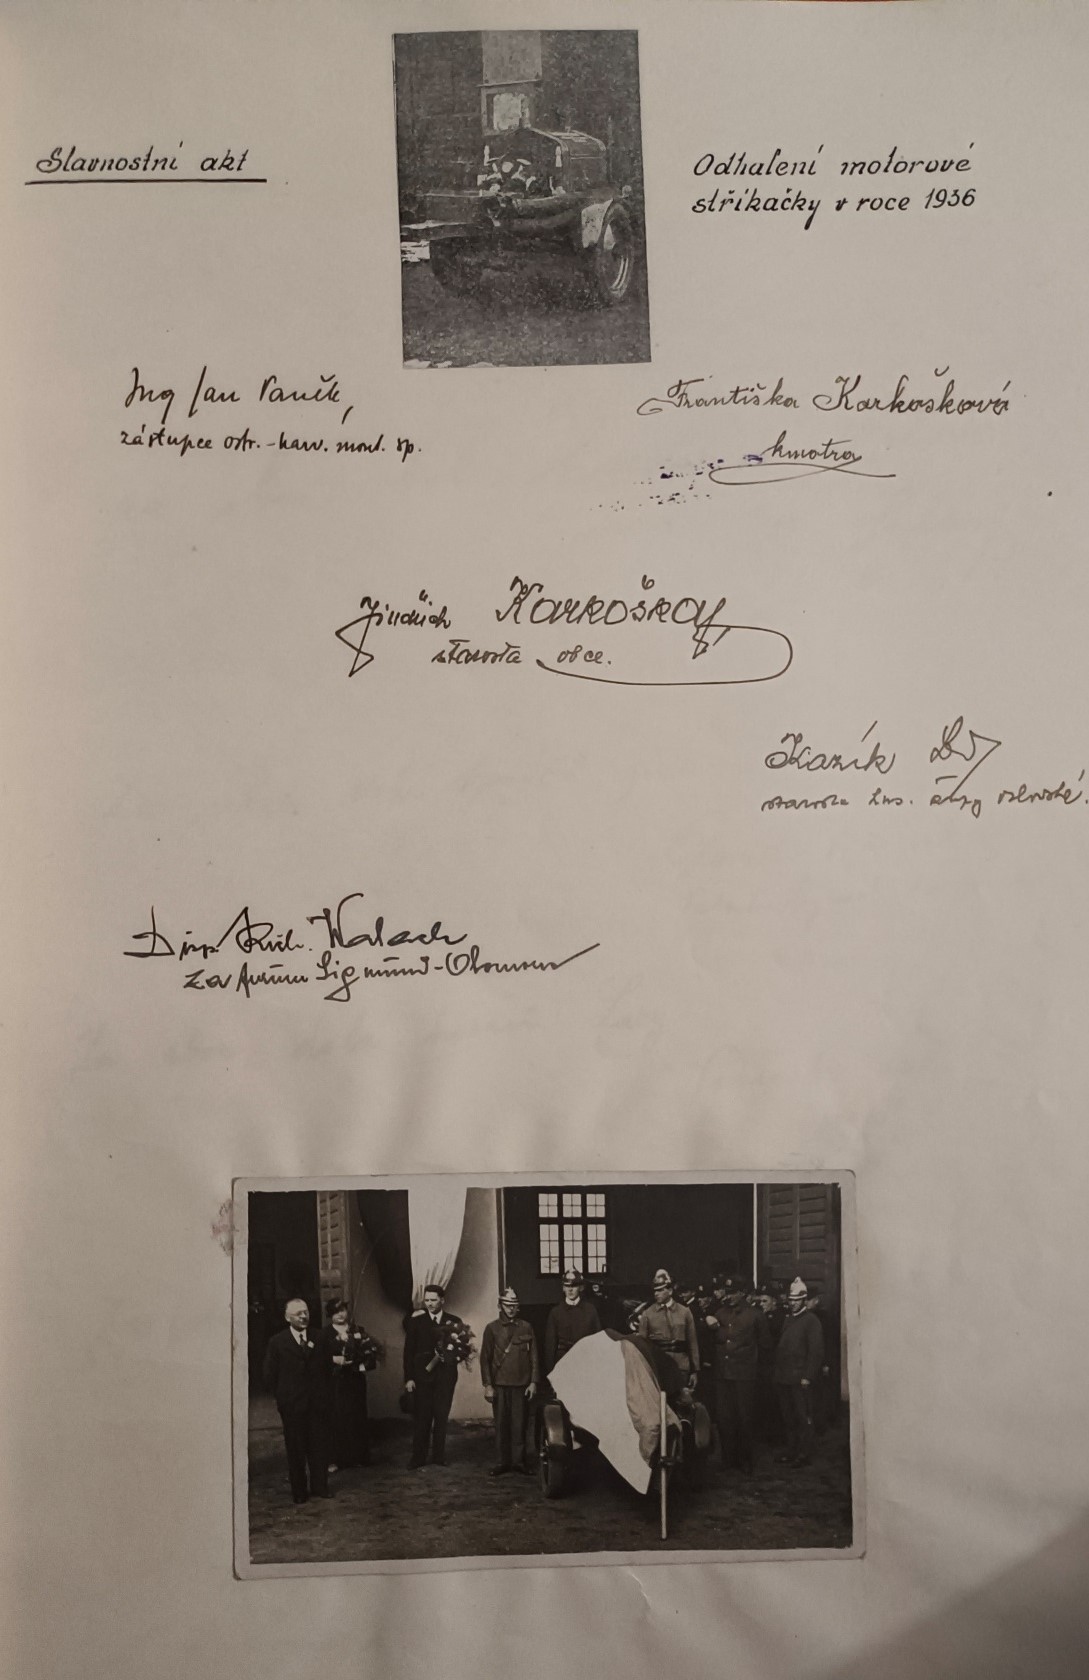 Slavnostní akt
Odhalení motorové
stříkačky v roce 1936
Ing Jan Vaněk,
zástupce ostr.-karv. mont. sp.
Františka Karkošková
kmotra
Jindřich Karkoška
starosta obce.
Kazík
starosta has. župy
Rich. Walach
za firmu Sigmund-Olomouc